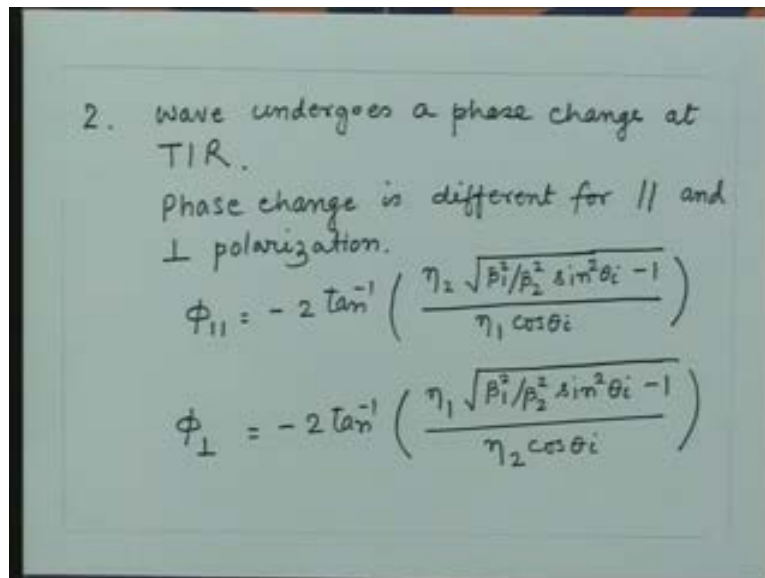 2. wave undergoes a phase change at
TIR.
Phase change is different for || and
⊥ polarization.
ϕ|| = - 2 tan⁻¹ ( η₂ √(β₁²/β₂² sin²θi - 1) / η₁ cosθi )
ϕ⊥ = - 2 tan⁻¹ ( η₁ √(β₁²/β₂² sin²θi - 1) / η₂ cosθi )